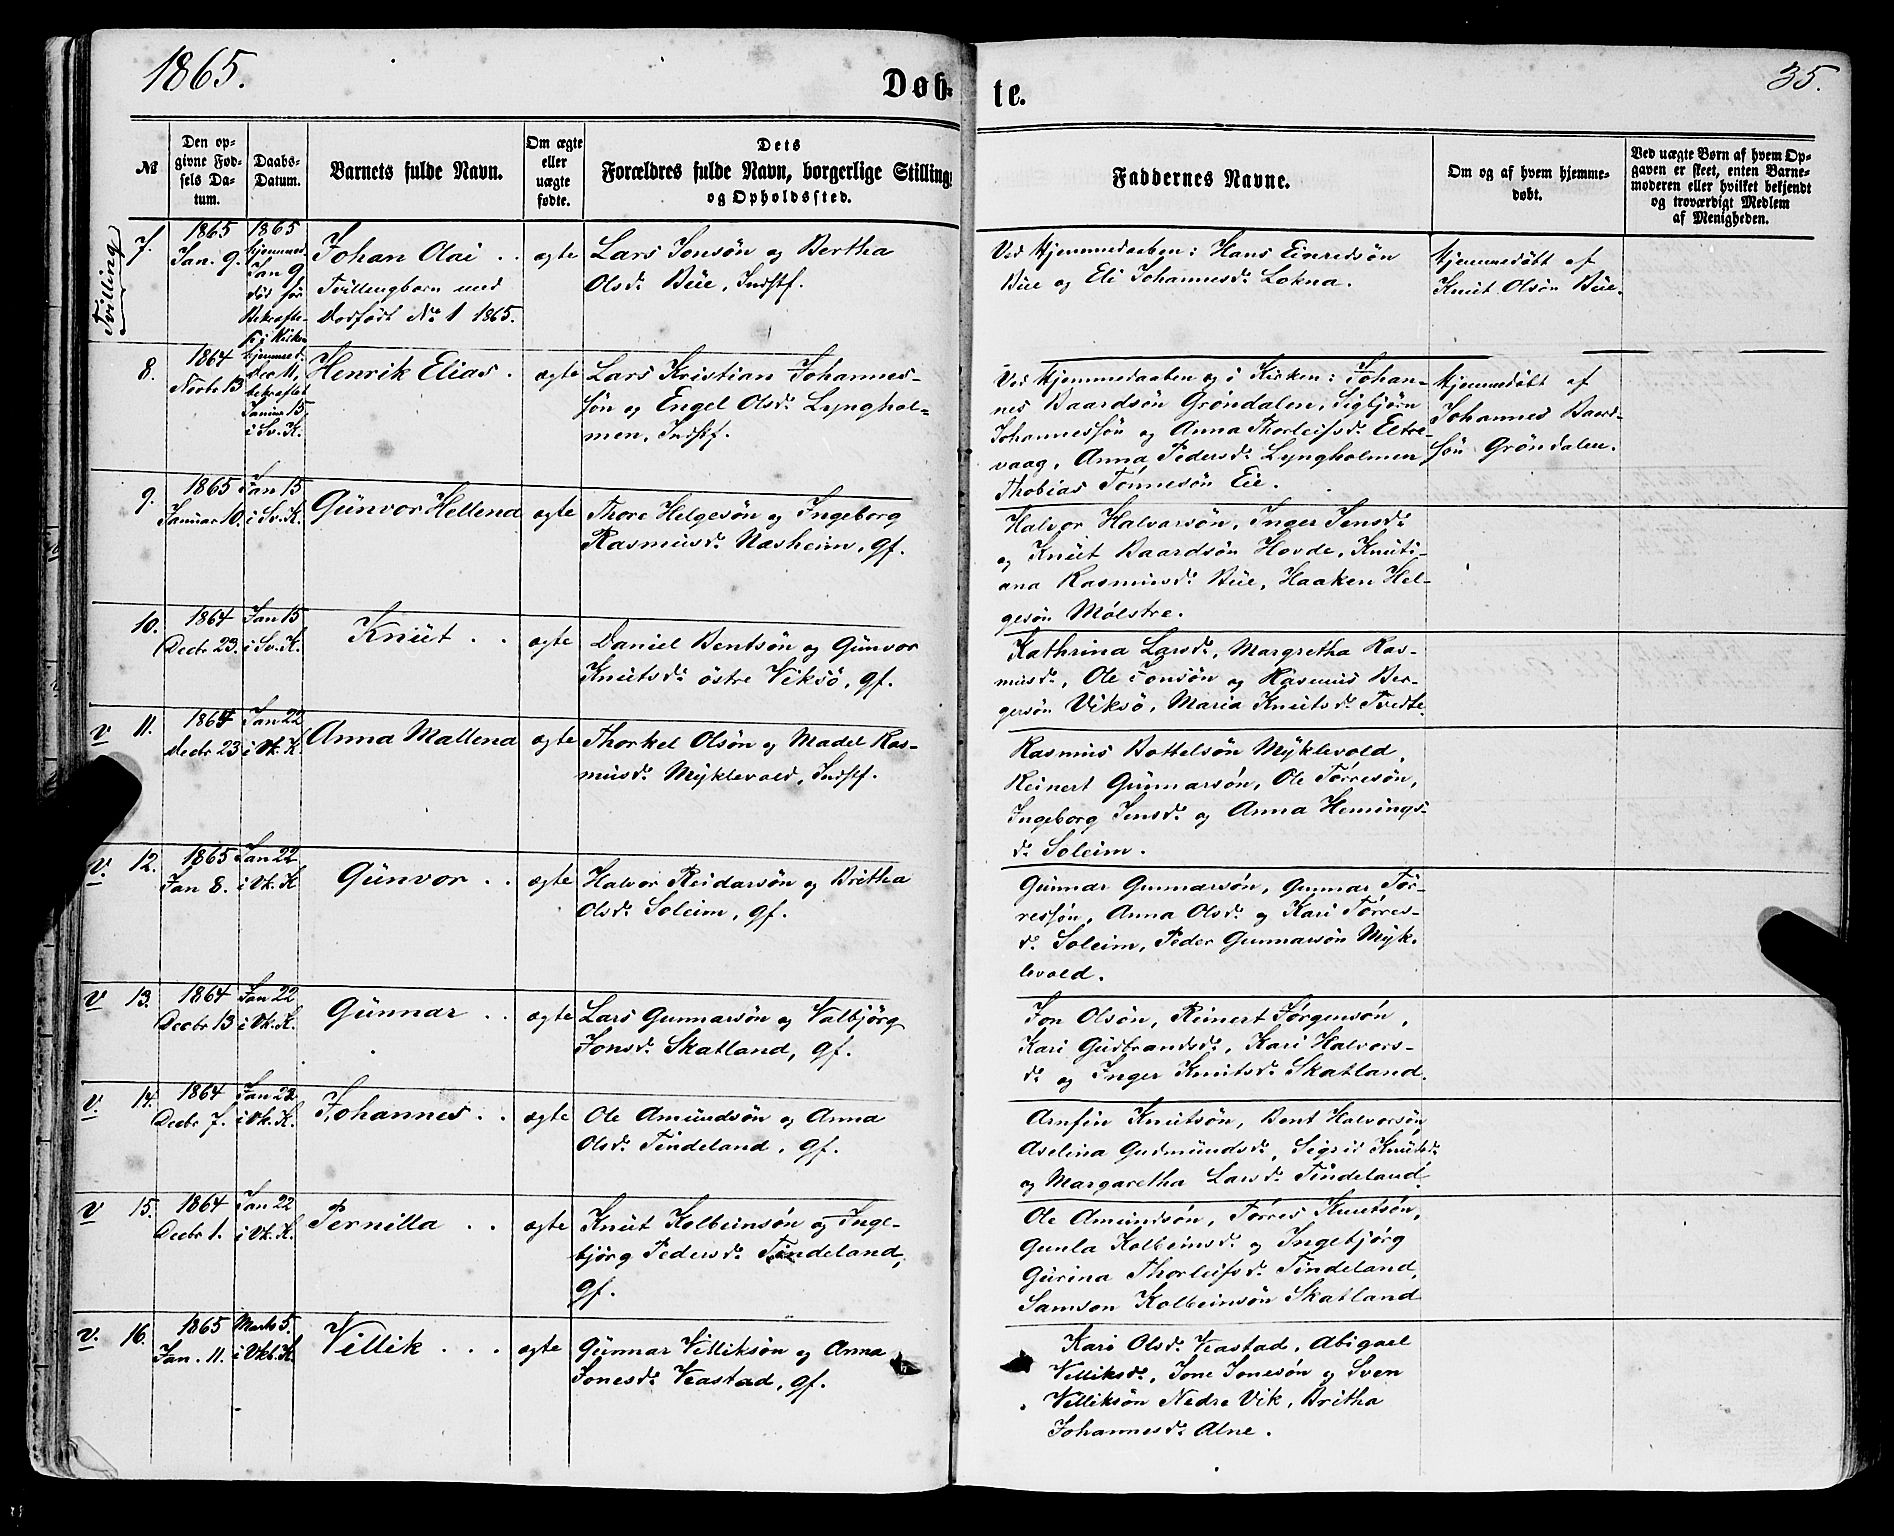 1865.
Døb-
te.
35.
№
Den op-
givne Fød-
sels Da-
tum.
Daabs-
Datum.
Barnets fulde Navn.
Om ægte
eller
uægte
fødte.
Dets
Forældres fulde Navn, borgerlige Stilling
og Opholdssted.
Faddernes Navne.
Om og af hvem hjemme-
døbt.
Ved uægte Børn af hvem Op-
gaven er skeet, enten Barne-
moderen eller hvilket bekjendt
og troværdigt Medlem
af Menigheden.
Tvilling
7.
1865
Jan. 9.
1865
hjemmed.
Jan 9
død før
Bekræftel-
se i Kirken
Johan Olai . .
Tvillingbarn med
Dødfødt No 1 1865.
ægte
Lars Jonsøn og Bertha
Olsd. Büe, Indstf.
Ved Hjemmedaaben: Hans Einredsøn
Büe og Eli Johannesd. Lokna.
Hjemmedøbt af
Knüt Olsøn Büe.
8.
1864
Novbr 13
hjemmed.
Dec 11,
bekræftet
Januar 15
i Sv. K.
Henrik Elias .
ægte
Lars Kristian Johannes-
søn og Engel Olsd. Lynghol-
men, Indstf.
Ved Hjemmedaaben og i Kirken: Johan-
nes Baardsøn Grøndalen, Sigbjørn
Johannessøn og Anna Thorleifsd. Eltre-
vaag, Anna Pedersd. Lyngholmen
Thobias Tønnesøn Eie.
Hjemmedøbt af
Johannes Baard-
søn Grøndalen.
9.
1865
Januar 10.
Jan 15
i Sv. K.
Günvor Hellena
ægte
Thore Helgesøn og Ingeborg
Rasmusd. Næsheim, gf.
Halvor Halvorsøn, Inger Jensd.
og Knüt Baardsøn Hovde, Knüti-
ana Rasmusd. Büe, Haaken Hel-
gesøn Mølstre.
10.
1864
Decbr 23.
Jan 15
i Sv. K.
Knüt . .
ægte
Daniel Bentsøn og Günvor
Knütsd. østre Viksø, gf.
Kathrina Larsd., Margretha Ras-
musd., Ole Jonsøn og Rasmus Ber-
gersøn Viksø, Maria Knütsd. Tvedte.
v
11.
1864
Decbr 23
Jan 22
i Vk. K.
Anna Mallena
ægte
Thorkel Olsøn og Madel Ras-
musd. Mÿklevold, Indstf.
Rasmus Bottelsøn Mÿklevold,
Reinert Günnarsøn, Ole Tørresøn,
Ingeborg Jensd. og Anna Hemings-
d. Soleim.
v.
12.
1865
Jan 8.
Jan 22
i Vk. K
Günvor . .
ægte
Halvor Reidarsøn og Britha
Olsd. Soleim, gf.
Günnar Gunnarsøn, Gunnar Tør-
ressøn, Anna Olsd. og Kari Tørres-
d. Soleim, Peder Gunnarsøn Mÿk-
levold.
v
13.
1864
Decbr 13
Jan 22
i Vk. K.
Günnar . .
ægte
Lars Gunnarsøn og Valbjørg
Jonsd. Skatland, gf.
Jon Olsøn, Reinert Jørgensøn,
Kari Gudbrandsd., Kari Halvors-
d. og Inger Knütsd. Skatland.
v.
14.
1864
Decbr 7.
Jan 22
i Vk. K.
Johannes . .
ægte
Ole Amündsøn og Anna
Olsd. Tindeland, gf.
Arnfin Knütsøn, Bent Halvorsøn
Aselina Gudmündsd., Sigrid Knütsd.
og Margaretha Larsd. Tindeland.
v
15.
1864
Decbr 1.
Jan 22
i Vk. K.
Pernilla . .
ægte
Knüt Kolbeinsøn og Inge-
bjørg Pedersd. Tindeland,
gf.
Ole Amündsøn, Tørres Knutsøn,
Gunla Kolbeinsd. og Ingebjørg
Gürina Thorleifsd. Tindeland,
Samson Kolbeinsøn Skatland
v.
16.
1865
Jan. 11.
Marts 5.
i Vkb. K.
Villik . . .
ægte
Günnar Villiksøn og Anna
Jonesd. Veastad, gf.
Kari Olsd. Veastad, Abigael
Villiksd., Jone Jonesøn og Sven
Villiksøn Nedre Vik, Britha
Johannesd. Alne.